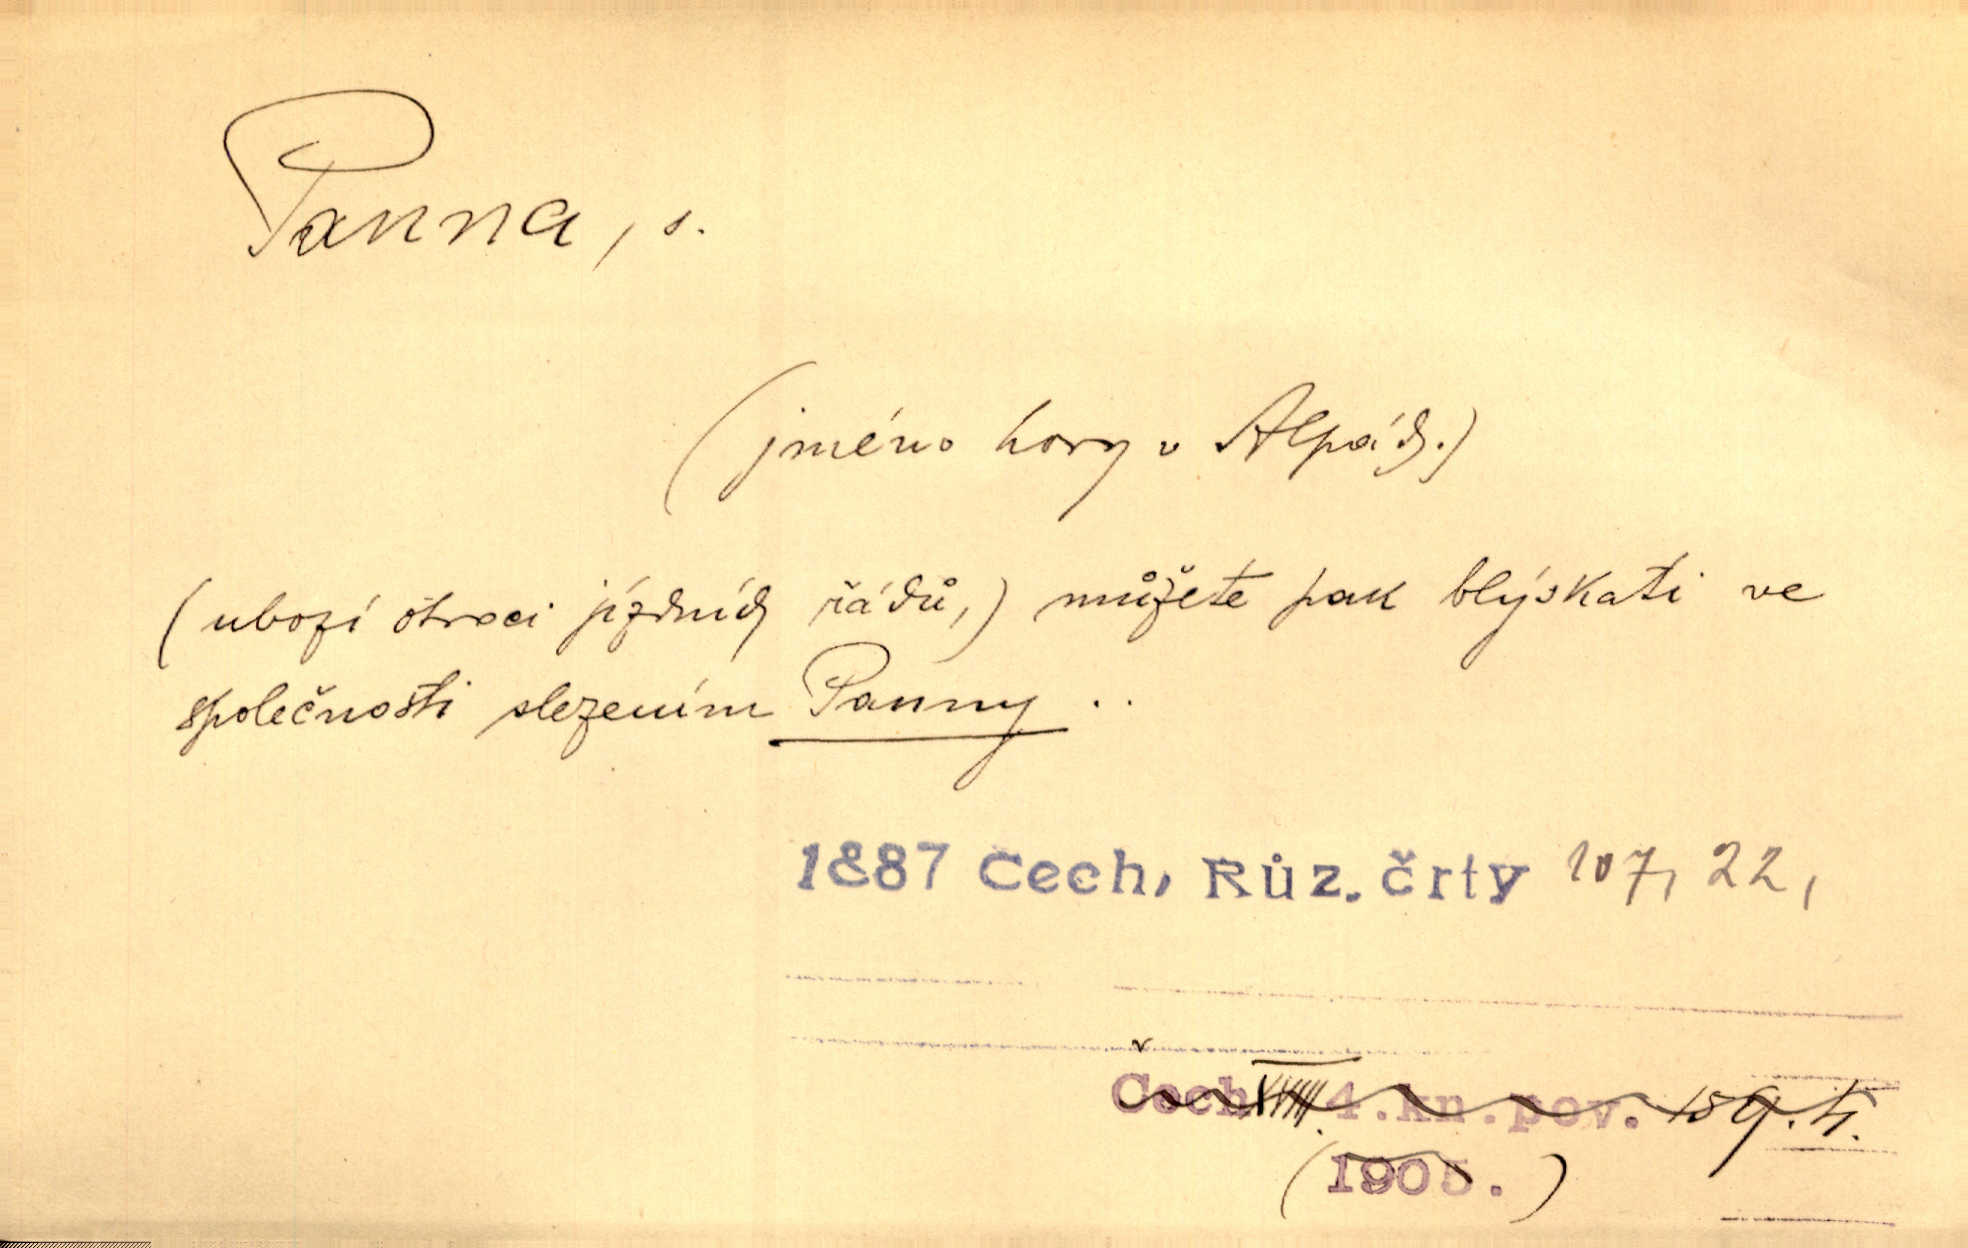 Panna, s.
(jméno hory v Alpách.)
(ubozí otroci jízdních řádů,) můžete pak blýskati ve
společnosti slezením Panny ..
1887 Čech, Růz. črty 107, 22,
Čech XVIII. 4. kn. pov. 159. 4.
(1905.)